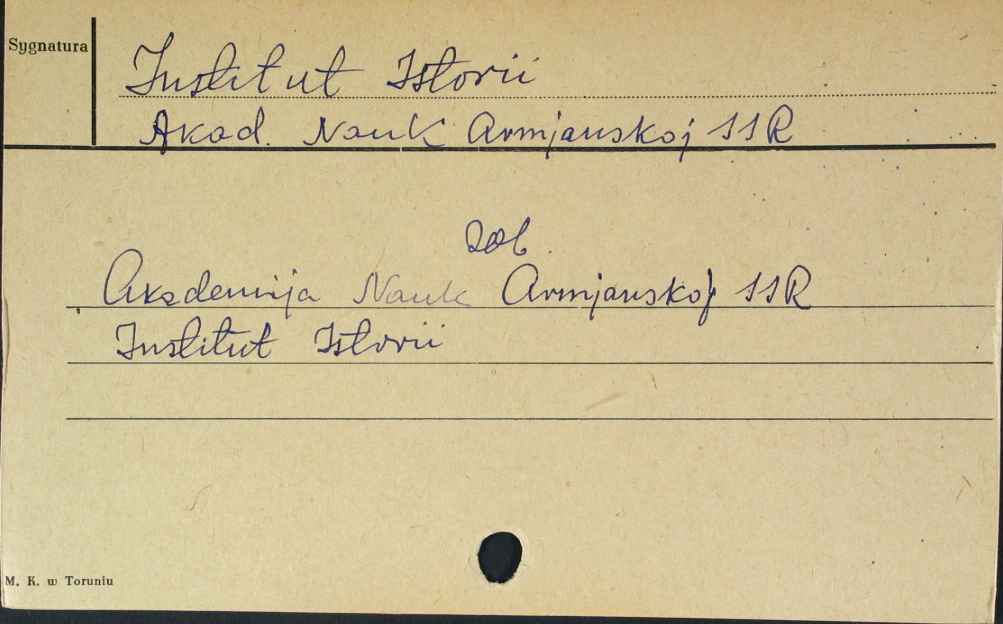 Sygnatura
Institut Istorii
Akad. Nauk Armjanskoj SSR
zob.
Akademija Nauk Armjanskoj SSR
Institut Istorii
M. K. w Toruniu